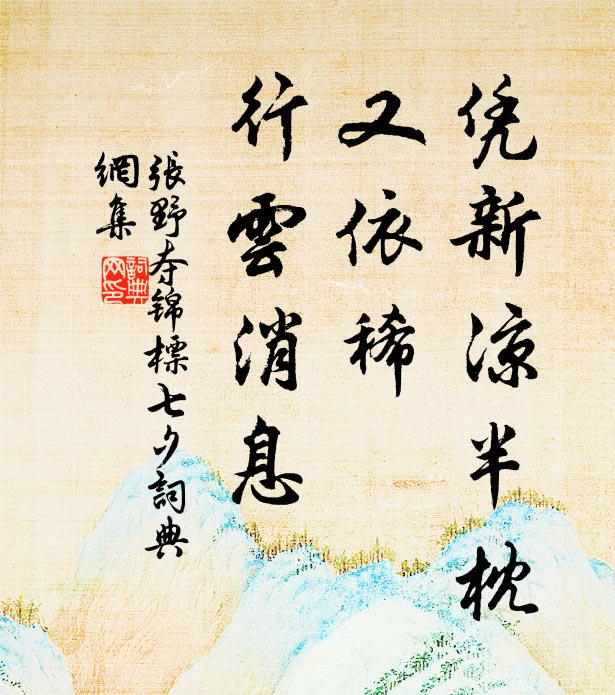 凭新凉半枕
又依稀
行雲消息
張野夺锦標七夕詞典
網集
詞典网印